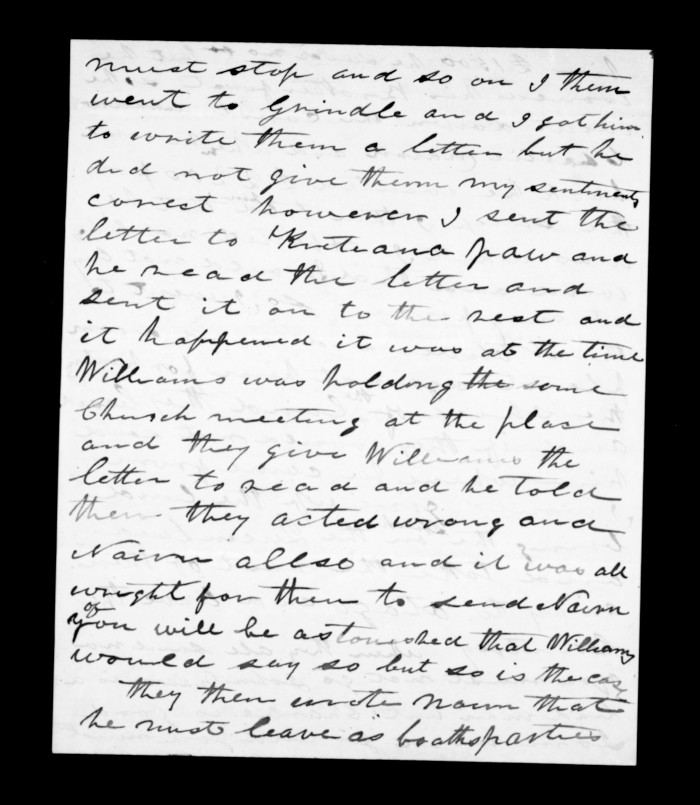 must stop and so on I then
went to Grindle and I got him
to write them a letter but he
did not give them my sentiments
corect however I sent the
letter to Kuteana paw and
he read the letter and
sent it on to the rest and
it happened it was at the time
Williams was holding the some
Church meeting at the place
and they give Williams the
letter to read and he told
them they acted wrong and
Nairn allso and it was all
wright for them to send Nairn
of
you will be astoneshed that Williams
would say so but so is the case
they then wrote Nairn that
he must leave as boath parties